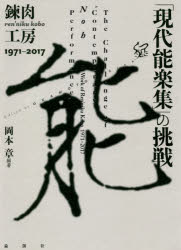 「現代能楽集」の挑戦
錬肉
ren'niku kobo
工房
1971-2017
The Challenge of
"Contemporary
Noh"
Performance
能
岡本 章 編著
論創社